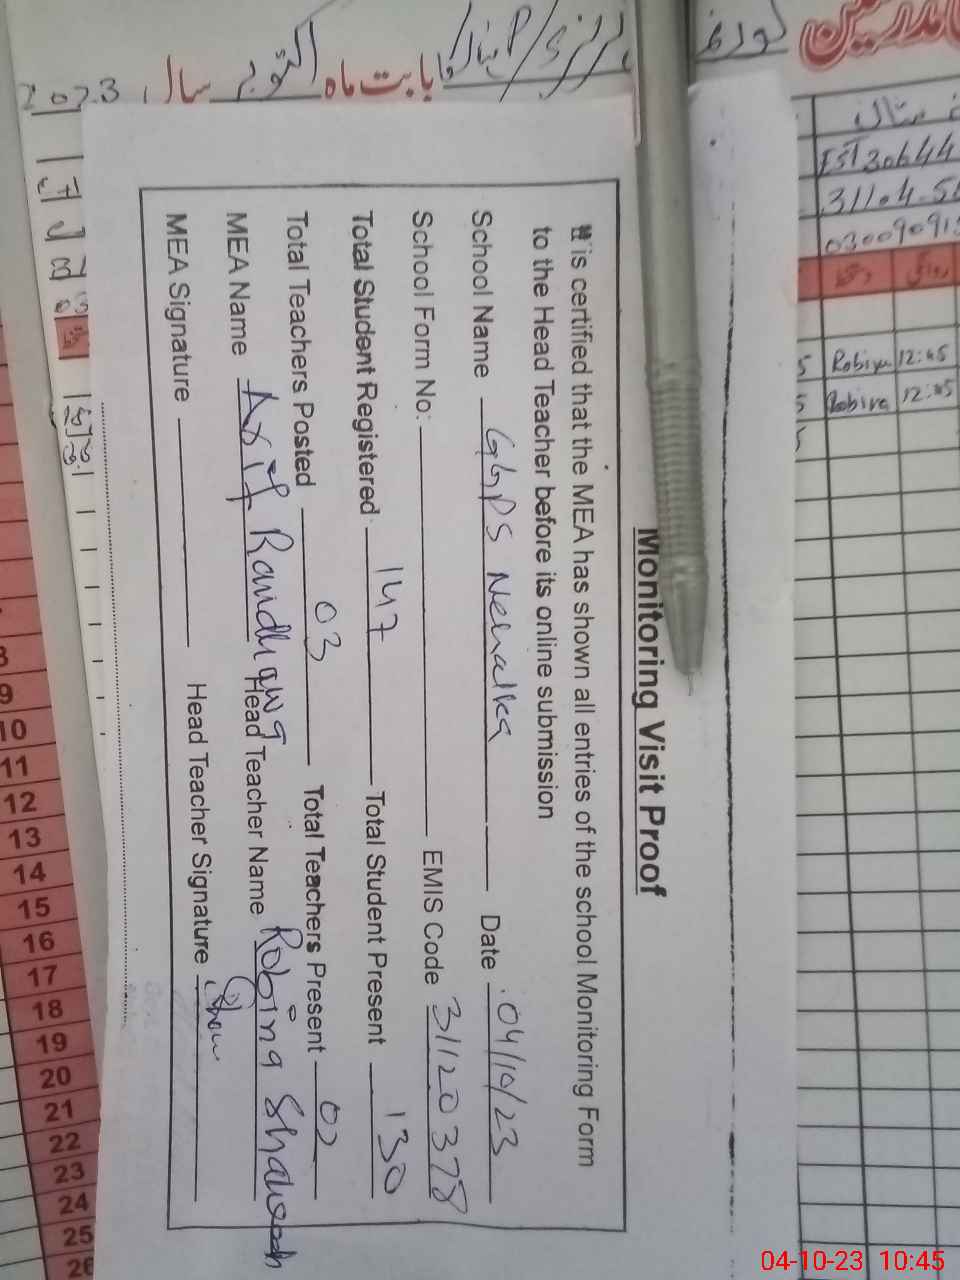 Monitoring Visit Proof
It is certified that the MEA has shown all entries of the school Monitoring Form
to the Head Teacher before its online submission
School Name GGPS Date 04/10/23
School Form No: EMIS Code 31120378
Total Student Registered 147 Total Student Present 130
Total Teachers Posted 03 Total Teachers Present 02
MEA Name Axif Randhawa Head Teacher Name Robina Shaheen
MEA Signature Head Teacher Signature
بابت ماہ
سال 2023
مدرسین
EST 30644
31104-5
Robina 12:45
Robina 12:45
8
9
10
11
12
13
14
15
16
17
18
19
20
21
22
23
24
25
26
04-10-23 10:45